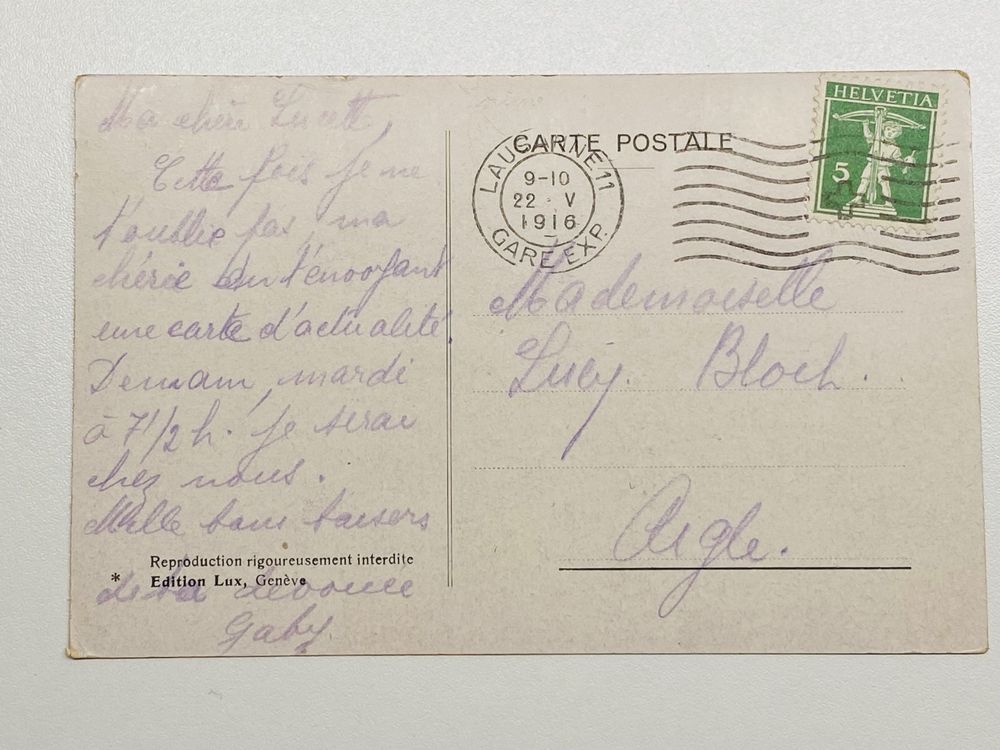 Ma chère Lucette,
Cette fois je ne
t'oublie pas, ma
chérie en t'envoyant
une carte d'actualité.
Demain, mardi
à 7 1/2 h. je serai
chez nous.
Mille bons baisers
de ta dévouée
Gaby.
Reproduction rigoureusement interdite
* Edition Lux, Genève
CARTE POSTALE
LAUSANNE 11
9-10
22 · V
1916
GARE EXP.
HELVETIA
5
Mademoiselle
Lucy Bloch.
Aigle.